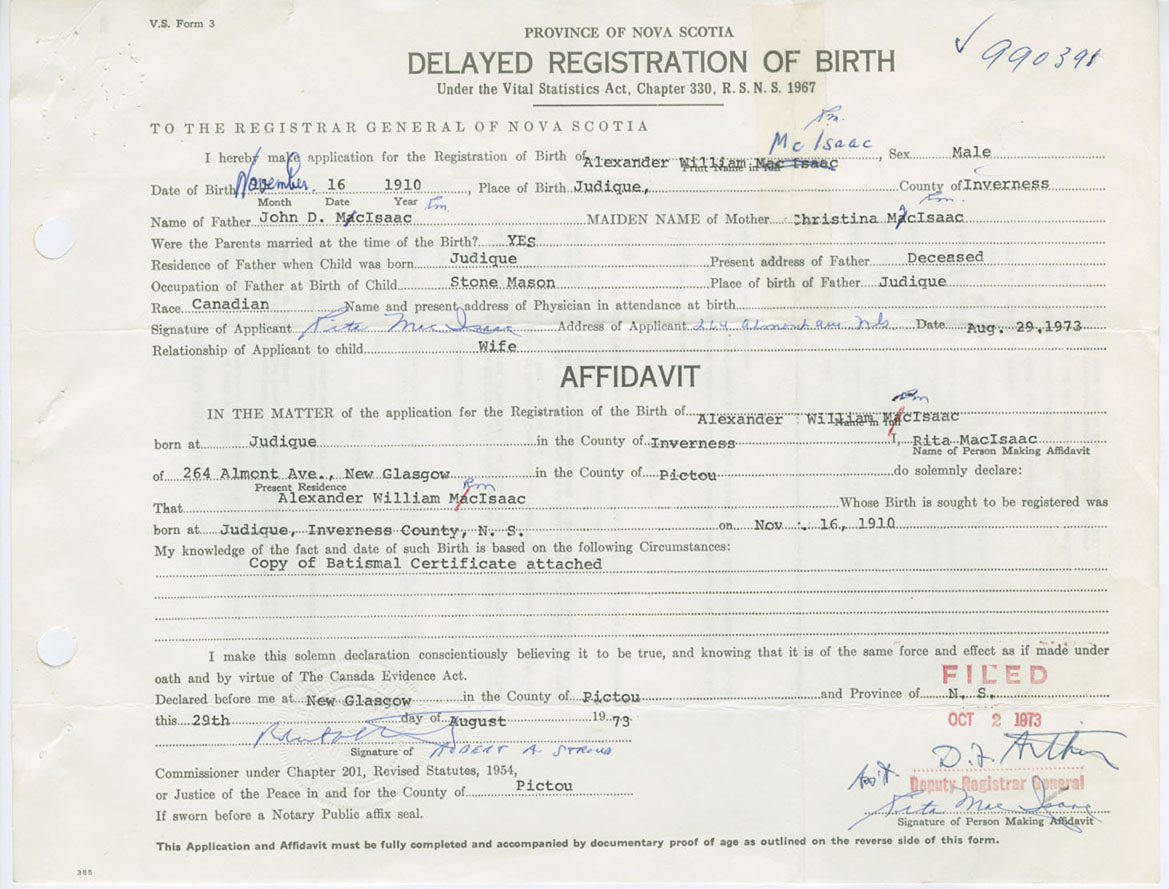 V.S. Form 3
PROVINCE OF NOVA SCOTIA
990398
DELAYED REGISTRATION OF BIRTH
Under the Vital Statistics Act, Chapter 330, R.S.N.S. 1967
TO THE REGISTRAR GENERAL OF NOVA SCOTIA
Rm.
McIsaac
I hereby make application for the Registration of Birth of Alexander William MacIsaac, Sex Male
Print Name in full
Date of Birth November 16 1910, Place of Birth Judique, County of Inverness
Month Date Year
Rm. Rm.
Name of Father John D. MacIsaac MAIDEN NAME of Mother Christina MacIsaac
Were the Parents married at the time of the Birth? YEs
Residence of Father when Child was born Judique Present address of Father Deceased
Occupation of Father at Birth of Child Stone Mason Place of birth of Father Judique
Race Canadian Name and present address of Physician in attendance at birth
Signature of Applicant Rita MacIsaac Address of Applicant 264 Almont ave N.G. Date Aug. 29,1973
Relationship of Applicant to child Wife
AFFIDAVIT
Rm
IN THE MATTER of the application for the Registration of the Birth of Alexander William MacIsaac
Name in full
born at Judique in the County of Inverness I, Rita MacIsaac
Name of Person Making Affidavit
of 264 Almont Ave., New Glasgow in the County of Pictou do solemnly declare:
Present Residence Rm
That Alexander William MacIsaac Whose Birth is sought to be registered was
born at Judique, Inverness County, N. S. on Nov . 16, 1910
My knowledge of the fact and date of such Birth is based on the following Circumstances:
Copy of Batismal Certificate attached
I make this solemn declaration conscientiously believing it to be true, and knowing that it is of the same force and effect as if made under
oath and by virtue of The Canada Evidence Act.
FILED
Declared before me at New Glasgow in the County of Pictou and Province of N. S.
this 29th day of August 1973
OCT 2 1973
Signature of ROBERT A. STROUD
D.F. Arthur
Commissioner under Chapter 201, Revised Statutes, 1954,
Ass't. Deputy Registrar General
or Justice of the Peace in and for the County of Pictou
Rita MacIsaac
If sworn before a Notary Public affix seal.
Signature of Person Making Affidavit
This Application and Affidavit must be fully completed and accompanied by documentary proof of age as outlined on the reverse side of this form.
385